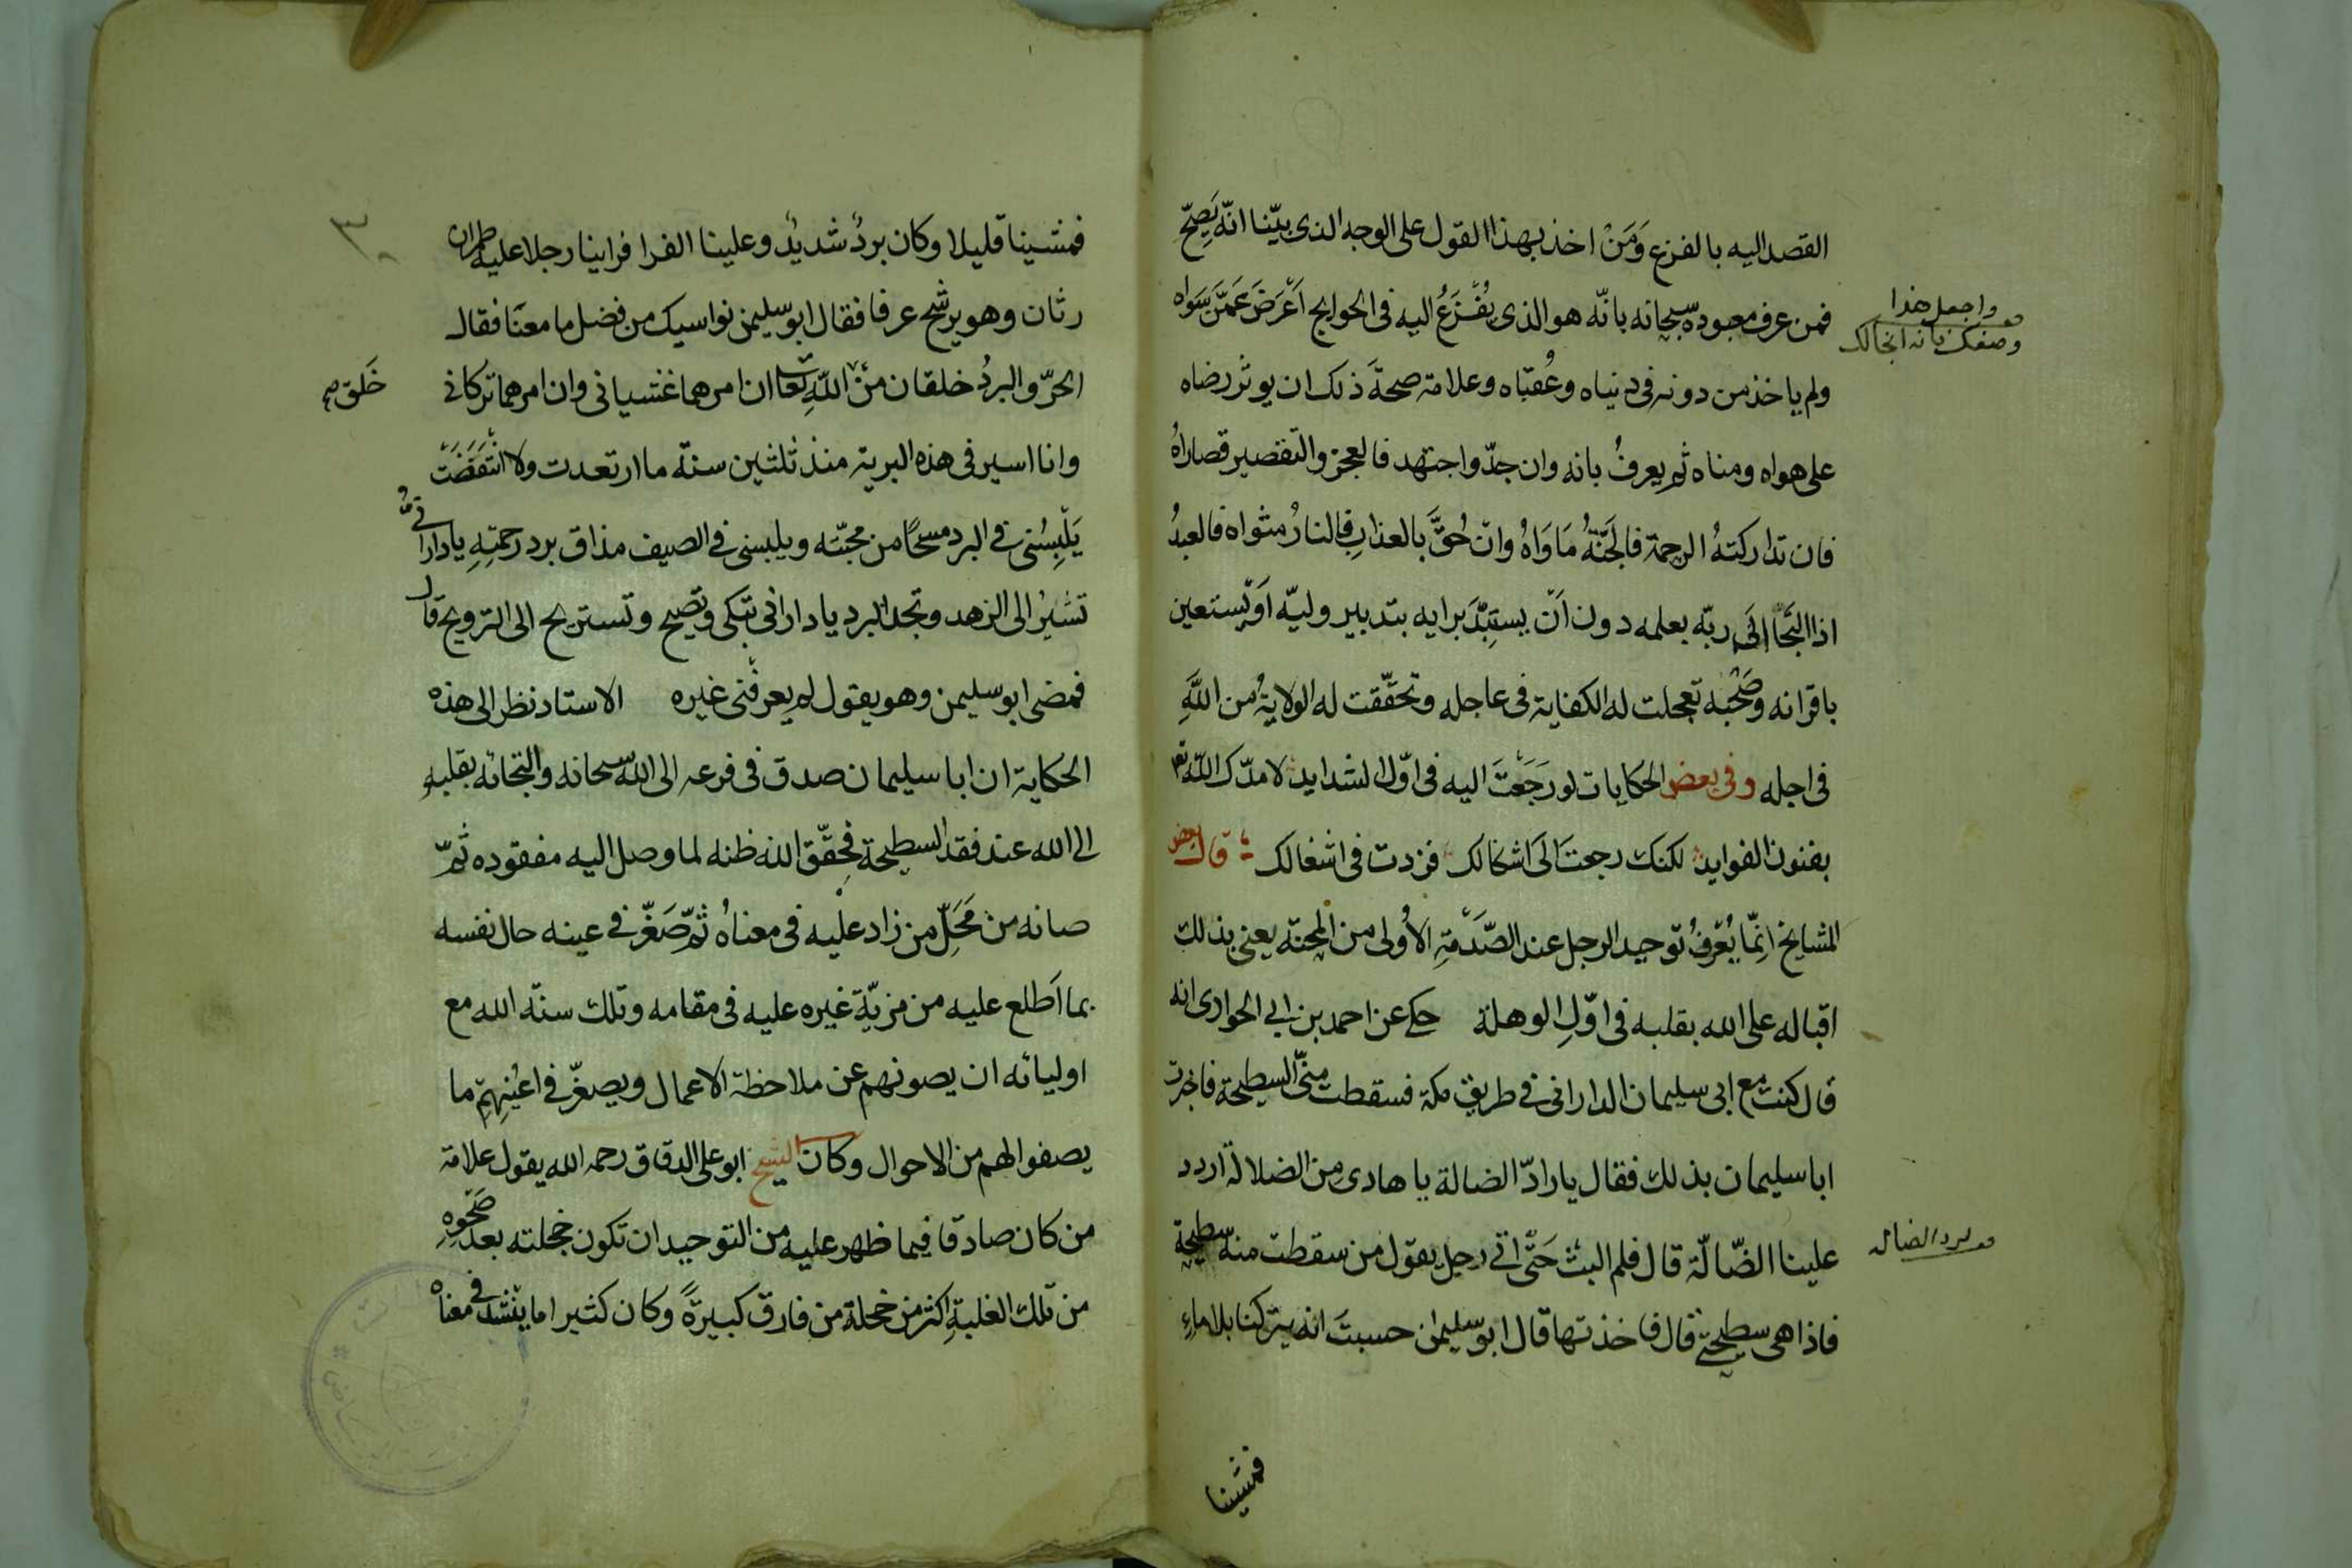 القصد اليه بالفزع وَمَنْ اخذ بهذا القول على الوجه الذى بيّنا انّه يَصِحّ
فمن عرف معبوده سبحانه بانّه هو الذى يُفْزَعُ اليه فى الحوايج اَعْرَضَ عَمَّن سَوَاه
ولم ياخذ من دونه فى دنياه وعُقبَاه وعلامة صحة ذلك ان يوثر رضاه
على هواه ومناه ثم يعرفُ بانه وان جدّ واجتهد فالعجز والتقصير قصاراهُ
فان تداركتهُ الرحمة فالجَنّةُ مَاوَاهُ وان حُقَّ بالعذاب فالنارُ مثواه فالعبدُ
اذا التجَأ الَى ربّه بعلمه دون اَن يستَبِدَّ برايه بتدبير وليّه اَو يستعين
باقرانه وصَحْبه تعجلت له الكفاية فى عاجله وتحقّقت له الولايةُ من اللّهِ
فى اجله وفى بعض الحكايات لو رَجَعْتَ اليه فى اوّل الشدايد لامدّك اللّه تع
بفنون الفوايد لكنك رجعتَ الَى اشكالك فزدت فى اشغالك قال بعض
المشايخ اِنّما يُعْرفُ توحيد الرجل عند الصَّدْمةِ الاُولى من المحنة يعنى بذلك
اقباله على الله بقلبه فى اوّلِ الوهلة حكى عن احمد بن ابى الحوارى انه
قال كنت مع ابى سليمان الدارانى فى طريق مكة فسقطت منّى السطيحة فاخبرت
ابا سليمان بذلك فقال يا رادّ الضالة يا هادى من الضلالة اردد
علينا الضّالّة قال فلم البث حَتّى اتى رجل يقول من سقطت منه سطيحة
فاذا هى سطيحتى قال فاخذتها قال ابو سليمن حسبتَ انه يتركنا بلا ماءِ
واجعل هذا
وصفك فانه انجا لك
لرد الضاله
فمشينا
فمشينا قليلا وكان بردُ شديدُ وعلينا الفرا فراينا رجلا عليه طمران
رثان وهو يرشح عرقا فقال ابو سليمن نواسيك من فضل ما معنَا فقال
الحرّ والبردُ خلقان من اللّهِ تعا ان امرهما غشيانى وان امرهما تركانى
وانا اسير فى هذه البرية منذ ثلثين سنة ما ارتعدت ولا انتَفَضَت
يَلْبِسُنى فى البرد مسحًا من محبّته ويلبسنى فى الصيف مذاق برد رحمتِهِ يا دارانىُّ
تشيرُ الى الزهد وتجد البرد يا دارانى تبكى وتصيح وتستريح الى الترويح قال
فمضى ابو سليمن وهو يقول لم يعرفنى غيره الاستاد نظر الى هذه
الحكاية ان ابا سليمان صدق فى فرعه الى اللّه سبحانه والتجائه بقلبهِ
الى الله عند فقد السطيحة فحقّق الله ظنه لما وصل اليه مفقوده ثُمّ
صانه من مَحَلّ من زاد عليه فى معناهُ ثمّ صَغّر فى عينه حال نفسه
بما اَطلع عليه من مزيّةِ غيره عليه فى مقامه وتلك سنّة الله مع
اوليائه ان يصونهم عن ملاحظة الاعمال ويصغّر فى اعْيُنِهِم ما
يصفوا لهم من الاحوال وكان الشيخ ابو على الدقاق رحمه الله يقول علامة
من كان صادقا فيما ظهر عليه من التوحيد ان تكون خجلته بعد صَحْوِهِ
من تلك الغلبةِ اكثر من خجلة من فارق كبيرةً وكان كثيرا ما ينشد فى معناه
خَلق صح
٣٠